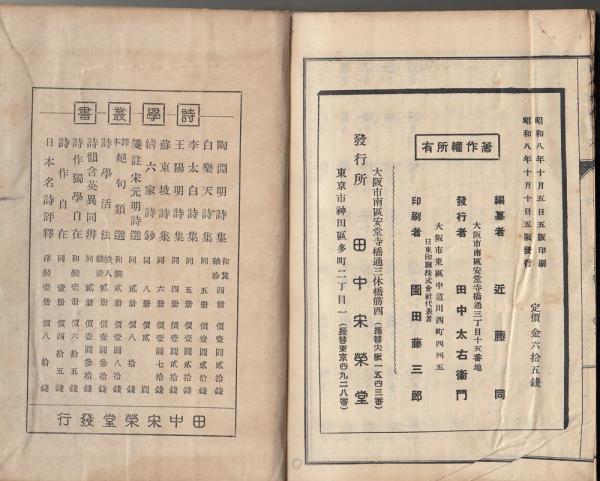 昭和八年十月五日五版印刷
昭和八年十月十日五版發行
定價金六拾五錢
著作權所有
編纂者 近藤同
大阪市南區安堂寺橋通三丁目十五番地
發行者 田中太右衞門
大阪市東區中道川西町四四五
日東印刷株式會社代表者
印刷者 園田藤三郎
大阪市南區安堂寺橋通三休橋筋西(振替大阪一五四三番)
發行所 田中宋榮堂
東京市神田區多町二丁目一(振替東京四九二八番)
詩學叢書
陶淵明詩集 和装袖珍 四册
白樂天詩集 同 五册 價壹圓貳拾錢
李太白詩集 同 五册 價壹圓貳拾錢
王陽明詩集
蘇東坡詩集 同 六册 價壹圓七拾錢
清六家詩鈔 同 八册 價貳圓
箋註宋元明詩選 同 貳册 價八拾錢
評本絕句類選 和裝貳册 價壹圓八拾錢
詩學活法
詩韻含英異同辨 同 貳册 價壹圓參拾錢
詩作獨學自在 和裝壹册 價六拾五錢
詩作自在 同 壹册 價四拾五錢
日本名詩評釋 洋裝壹册 價八拾錢
田中宋榮堂發行